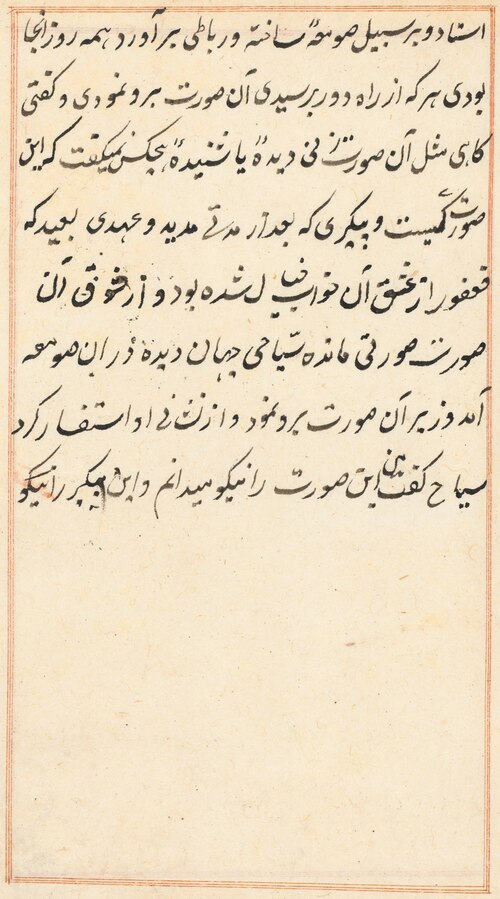 استاد و بر سبیل صومعهٔ ساخته و رباطی بر آورد همه روز آنجا
بودی هر که از راه دور برسیدی آن صورت برو نمودی و کفتی
کاهی مثل آن صورت زنی دیدهٔ یا شنیدهٔ هیچکس نمیکفت که این
صورت کیست و پیکری که بعد از مدتی مدید و عهدی بعید که
فغفور از عشق آن خواب خیال شده بود و از شوق آن
صورت صورتی مانده سیّاحی جهان دیده در ان صومعه
آمد وزیر آن صورت برو نمود و از نشانی او استفسار کرد
سیاح کفت من این صورت را نیکو میدانم و این پیکر را نیکو